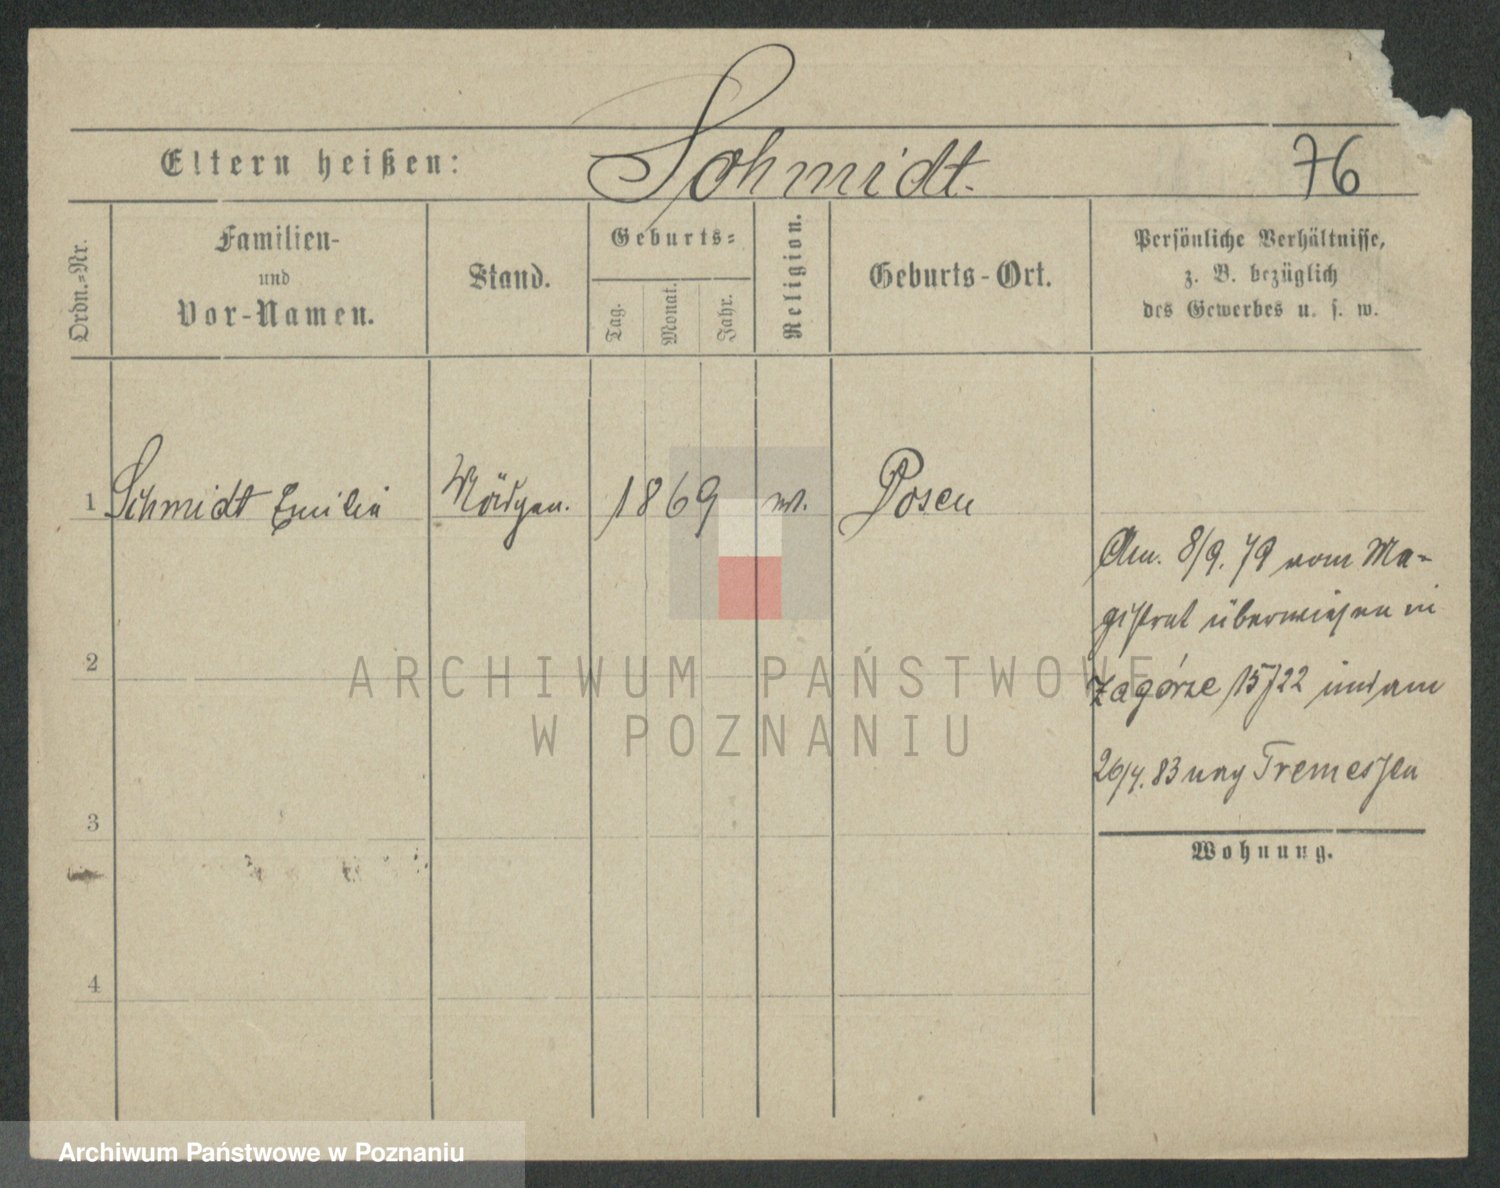 Eltern heißen: Schmidt. 76
Ordn.=Nr.
Familien-
und
Vor-Namen.
Stand.
Geburts=
Tag.
Monat.
Jahr.
Religion.
Geburts-Ort.
Persönliche Verhältnisse,
z. B. bezüglich
des Gewerbes u. s. w.
1 Schmidt Emilie Mädgen. 1869 Posen
Am. 8/9. 79 vom Ma-
gistrat überwiesen in
Zagórze 15/22 und am
26/4. 83 nach Tremessen
2
3
Wohnung.
4
ARCHIWUM PAŃSTWOWE
W POZNANIU
Archiwum Państwowe w Poznaniu